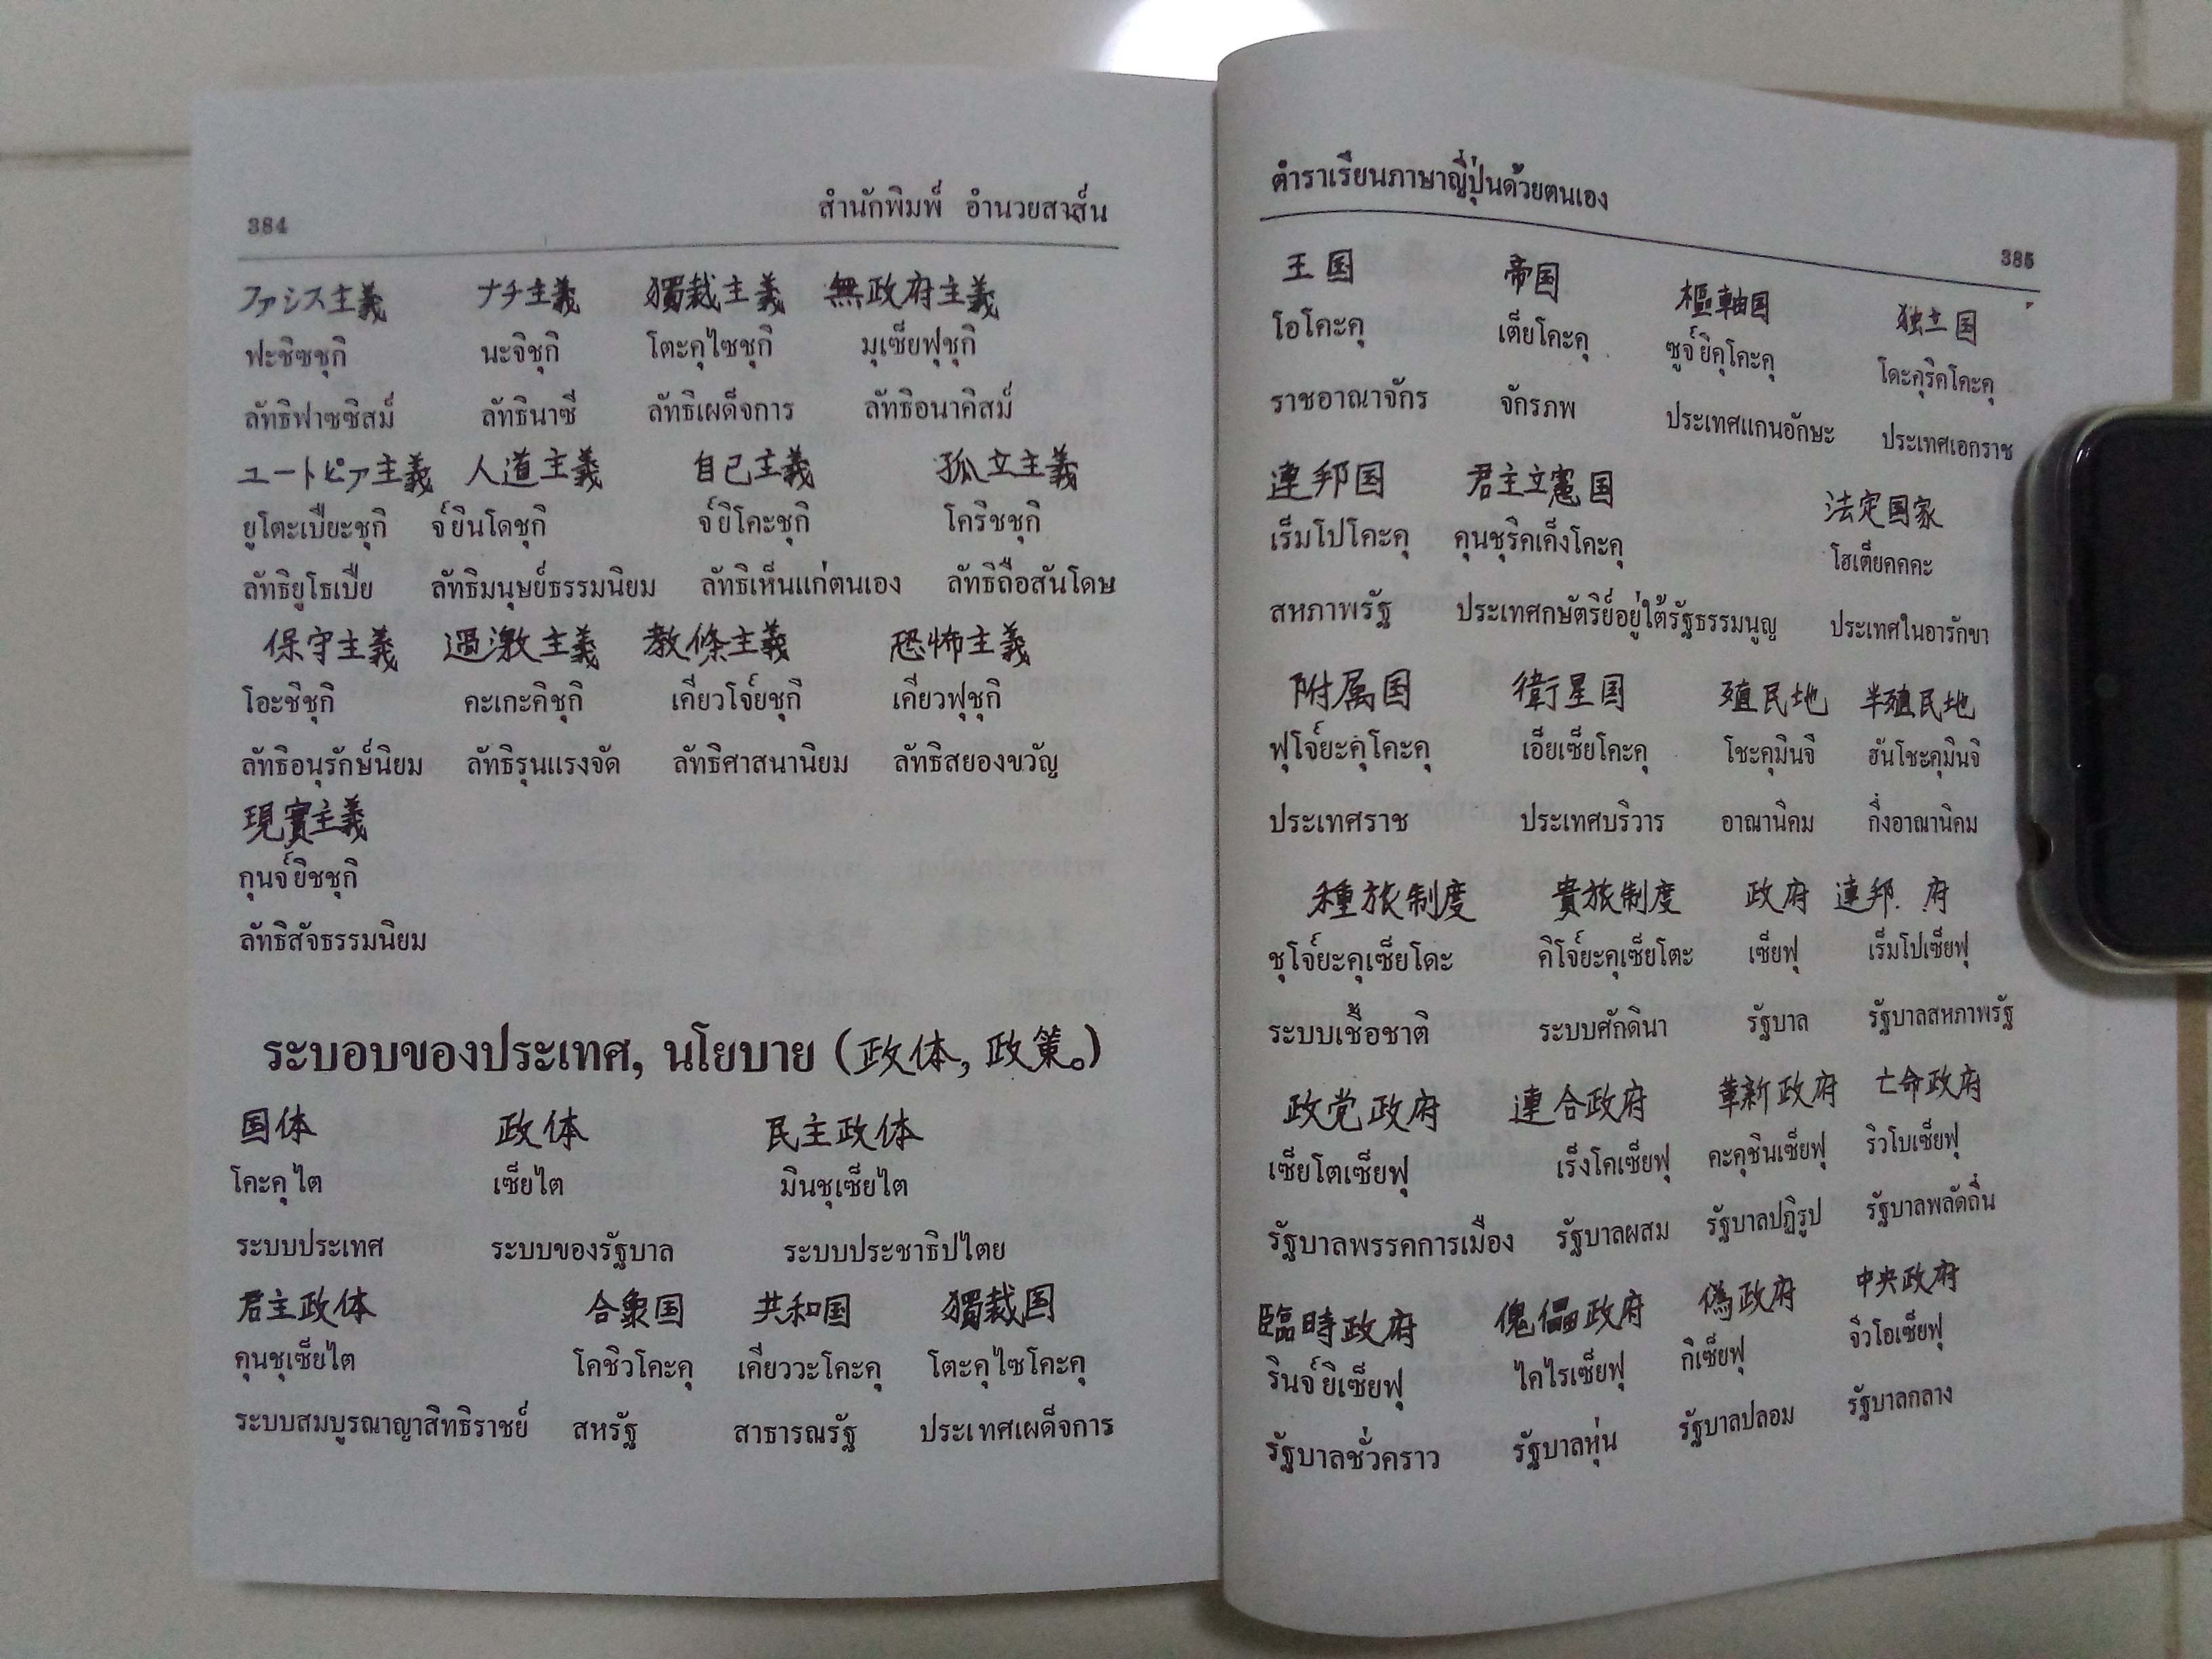 384
สำนักพิมพ์ อำนวยสาส์น
ファシス主義 ナチ主義 獨裁主義 無政府主義
ฟะชิซชุกิ นะจิชุกิ โตะคุไซชุกิ มุเซ็ยฟุชุกิ
ลัทธิฟาซซิสม์ ลัทธินาซี ลัทธิเผด็จการ ลัทธิอนาคิสม์
ユートピア主義 人道主義 自己主義 孤立主義
ยูโตะเบียะชุกิ จ์ยินโดชุกิ จ์ยิโคะชุกิ โคริซชุกิ
ลัทธิยูโธเบีย ลัทธิมนุษย์ธรรมนิยม ลัทธิเห็นแก่ตนเอง ลัทธิถือสันโดษ
保守主義 過激主義 教條主義 恐怖主義
โอะชิชุกิ คะเกะคิชุกิ เคียวโจ์ยชุกิ เคียวฟุชุกิ
ลัทธิอนุรักษ์นิยม ลัทธิรุนแรงจัด ลัทธิศาสนานิยม ลัทธิสยองขวัญ
現實主義
กุนจ์ยิชชุกิ
ลัทธิสัจธรรมนิยม
ระบอบของประเทศ, นโยบาย (政体, 政策。)
国体 政体 民主政体
โคะคุไต เซ็ยไต มินชุเซ็ยไต
ระบบประเทศ ระบบของรัฐบาล ระบบประชาธิปไตย
君主政体 合衆国 共和国 獨裁国
คุนชุเซ็ยไต โคชิวโคะคุ เคียววะโคะคุ โตะคุไซโคะคุ
ระบบสมบูรณาญาสิทธิราชย์ สหรัฐ สาธารณรัฐ ประเทศเผด็จการ
ตำราเรียนภาษาญี่ปุ่นด้วยตนเอง
385
王国 帝国 樞軸国 独立国
โอโคะคุ เต็ยโคะคุ ซูจ์ยิคุโคะคุ โดะคุริคโคะคุ
ราชอาณาจักร จักรภพ ประเทศแกนอักษะ ประเทศเอกราช
連邦国 君主立憲国 法定国家
เร็มโปโคะคุ คุนชุริคเค็งโคะคุ โฮเต็ยคคคะ
สหภาพรัฐ ประเทศกษัตริย์อยู่ใต้รัฐธรรมนูญ ประเทศในอารักขา
附属国 衛星国 殖民地 半殖民地
ฟุโจ์ยะคุโคะคุ เอ็ยเซ็ยโคะคุ โชะคุมินจิ ฮันโชะคุมินจิ
ประเทศราช ประเทศบริวาร อาณานิคม กึ่งอาณานิคม
種旅制度 貴旅制度 政府 連邦. 府
ชุโจ์ยะคุเซ็ยโดะ คิโจ์ยะคุเซ็ยโตะ เซ็ยฟุ เร็มโปเซ็ยฟุ
ระบบเชื้อชาติ ระบบศักดินา รัฐบาล รัฐบาลสหภาพรัฐ
政党政府 連合政府 革新政府 亡命政府
เซ็ยโตเซ็ยฟุ เร็งโคเซ็ยฟุ คะคุชินเซ็ยฟุ ริวโบเซ็ยฟุ
รัฐบาลพรรคการเมือง รัฐบาลผสม รัฐบาลปฏิรูป รัฐบาลพลัดถิ่น
臨時政府 傀儡政府 偽政府 中央政府
รินจ์ยิเซ็ยฟุ ไคไรเซ็ยฟุ กิเซ็ยฟุ จิวโอเซ็ยฟุ
รัฐบาลชั่วคราว รัฐบาลหุ่น รัฐบาลปลอม รัฐบาลกลาง